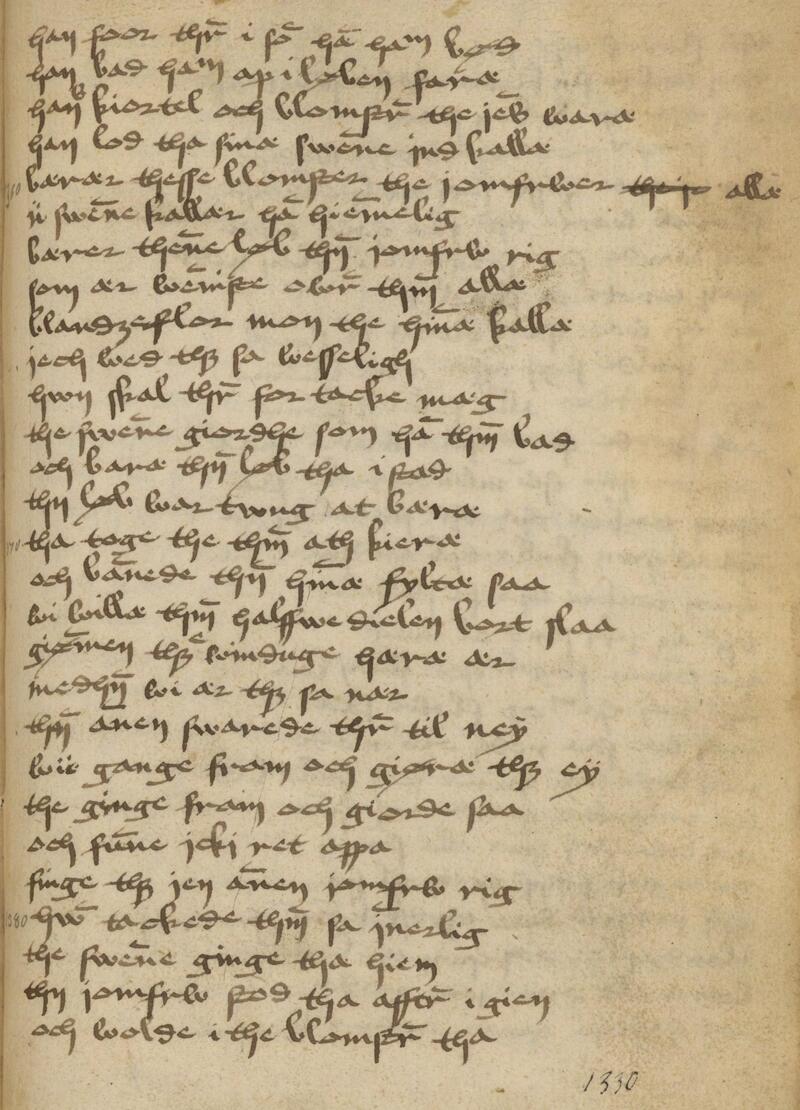 han foor thr̄ i sō hā ham bød
han bad ham ap i løben faræ
hans kiortel och blomstr̄ the iēs waræ
han lod tha sinæ swēne ind kallæ
bærær thesse blomster the iomfrwer allæ
ii swēne kallær hā hiēmelig
bærer thēne løb thn̄ iomfrw rig
som ær wēniste owr̄ thm̄ allæ
blandzeflor mon the hīnæ kallæ
jech wed thz sa wesseligh
hwn skal thr̄ for tacke mæg
the swēne giordhe som hā thm̄ bad
och baræ thn̄ løb tha i stad
thn løb war twng at bæræ
tha toge the thm̄ ath kieræ
och bānede thn̄ hīnæ fyltæ saa
wi willæ thm̄ halffwe dielen bort slaa
giømen thz windwge hæræ ær
medhn̄ wi ær thz sa nær
thn̄ anen swarede thr̄ til ney
wii gange fram och giøræ thz ey
the ginge fram och giorde saa
och fūne jcki ret appa
finge thz jen ānen iomfrw rig
hw̄ tackede thm̄ sa jnerlig
the swēne ginge thæ hiem
thn iomfrw stod tha afftr̄ i gien
och wolde i the blomstr̄ tha
1330